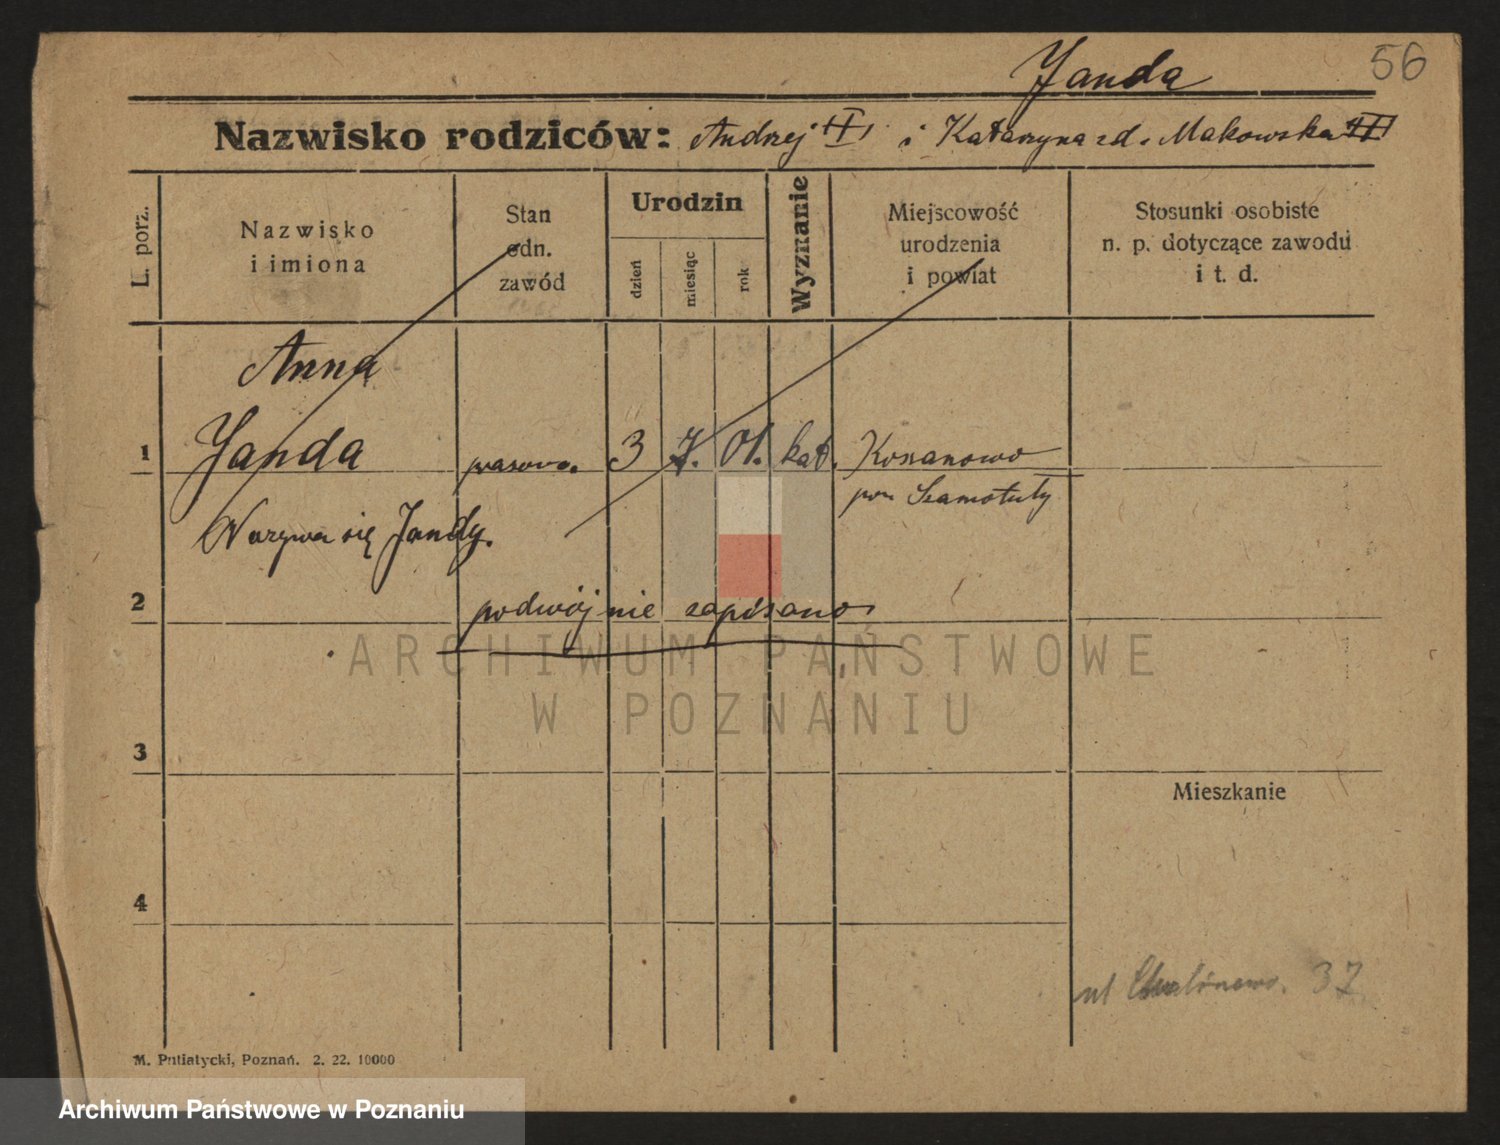 56
Janda
Nazwisko rodziców: Andrzej (†) i Katarzyna zd. Makowska
L. porz.
Nazwisko
i imiona
Stan
odn.
zawód
Urodzin
dzień
miesiąc
rok
Wyznanie
Miejscowość
urodzenia
i powiat
Stosunki osobiste
n. p. dotyczące zawodu
i t. d.
Anna
1 Janda prasowa. 3 7. 01. kat. Koźanowo
pow Szamotuły
Nazywa się Jandy.
2 podwójnie zapisano
ARCHIWUM PAŃSTWOWE
W POZNANIU
3
Mieszkanie
4
ul 37
M. Putiatycki, Poznań. 2. 22. 10000
Archiwum Państwowe w Poznaniu